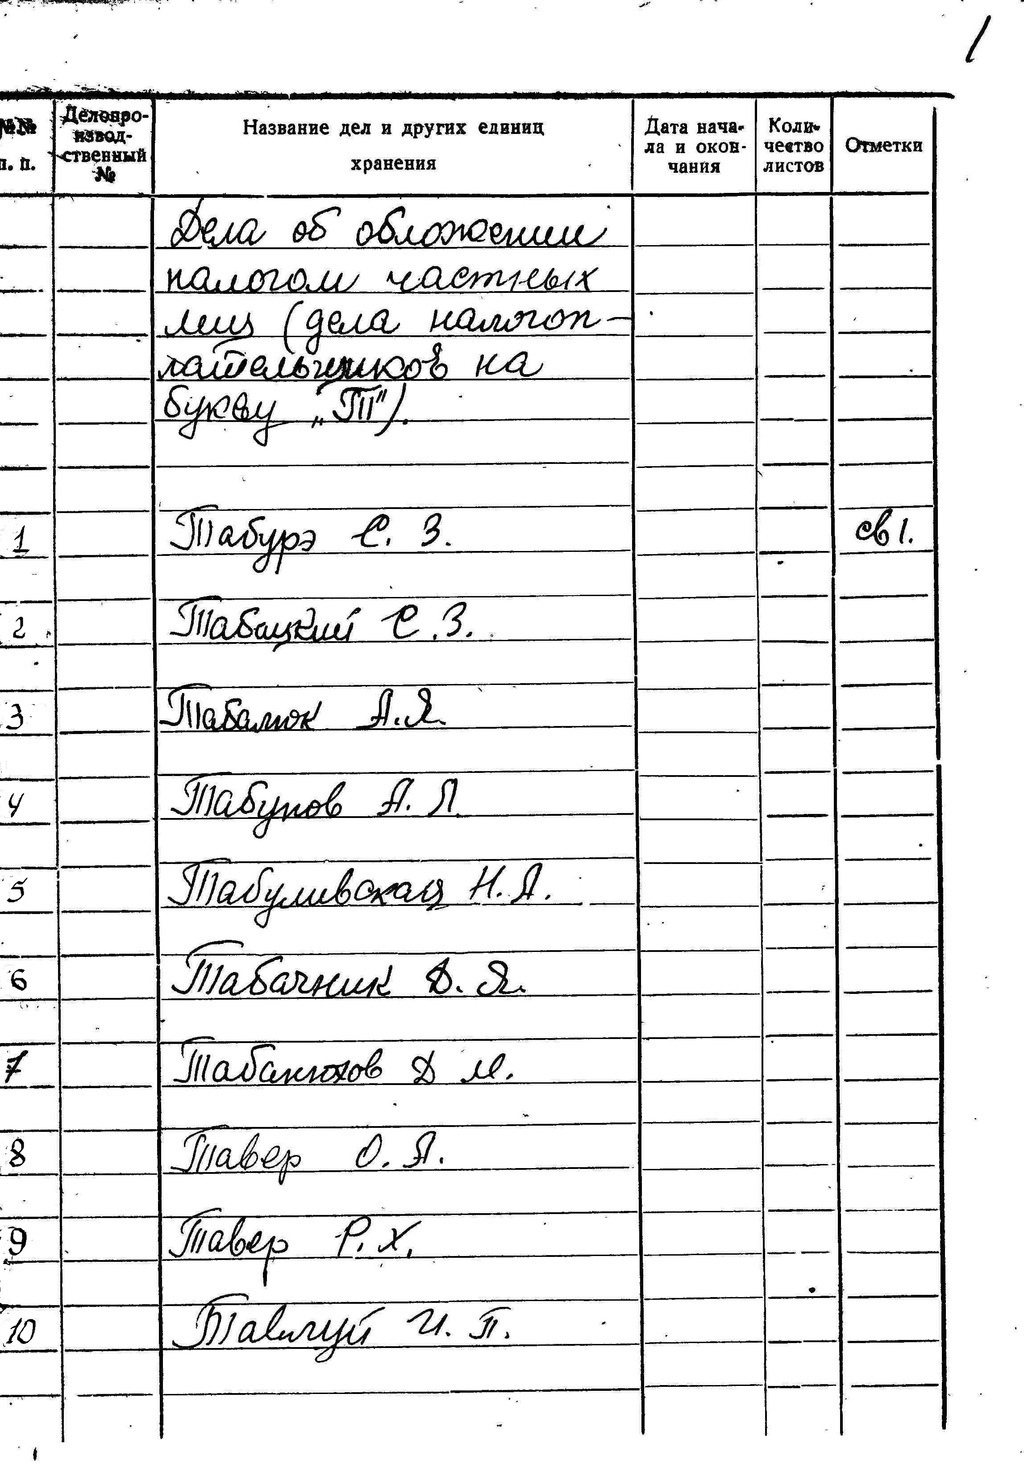 1
№№ п. п.
Делопроизводственный №
Название дел и других единиц хранения
Дата начала и окончания
Количество листов
Отметки
Дела об обложении
налогом частных
лиц (дела налогоп-
лательщиков на
букву „Т").
1 Табурэ С. З. св 1.
2 Табацкий С. З.
3 Табалюк А. Я.
4 Табунов А. Л.
5 Табуливская Н. А.
6 Табачник Д. Я.
7 Табанюхов Д М.
8 Тавер О. А.
9 Тавер Р. Х.
10 Тавлуй И. П.